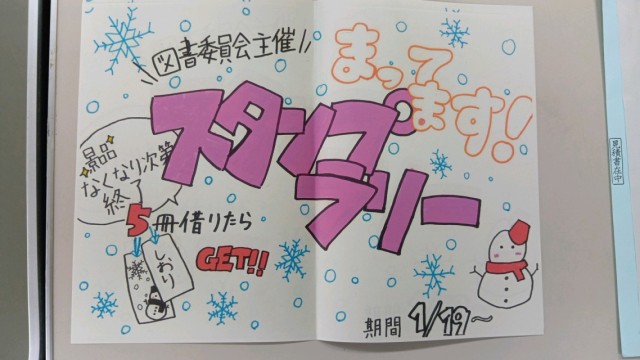 図書委員会主催
まってます!
スタンプラリー
景品
なくなり次第
終了
5冊借りたら
GET!!
しわり
期間 1/19~
見積書在中